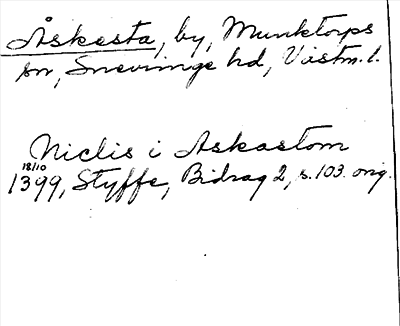 Åskesta, by, Munktorps
sn, Snevringe hd, Västm. l.
Niclis i Askastom
18/10
1399, Styffe, Bidrag 2, s. 103. orig.